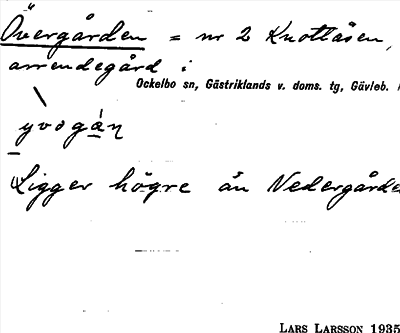 Övergården = nr 2 Knottåsen,
arrendegård i
Ockelbo sn, Gästriklands v. doms. tg, Gävleb.
yvogan
Ligger högre än Nedergårde
LARS LARSSON 1935